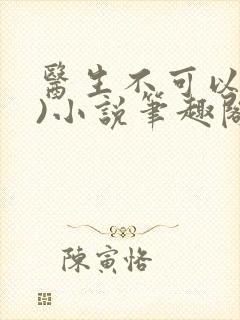 醫生不可以
)小說筆趣閣
陳寅恪